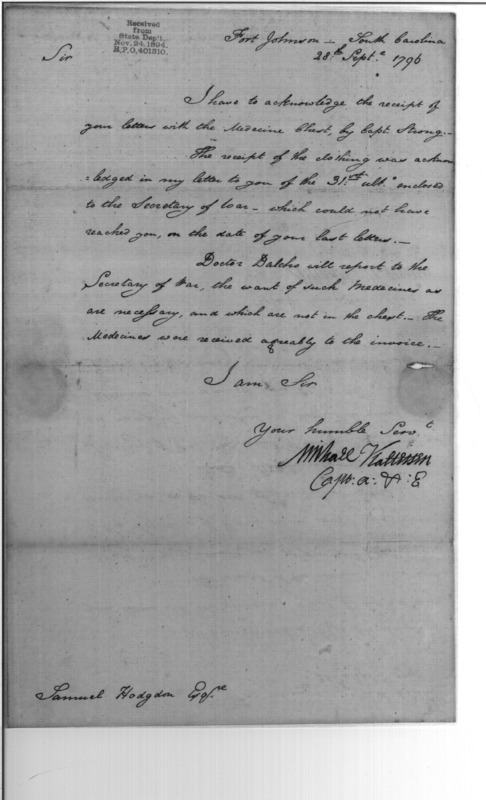 Received
from
State Dep't.
Nov. 24, 1894.
R.P.O, 401310.
Fort Johnson — South Carolina
28th Sept.r 1796
Sir
I have to acknowledge the receipt of
your letters with the Medicine Chest, by Capt. Strong. —
The receipt of the clothing was acknow
=ledged in my letter to you of the 31st ult.o enclosed
to the Secretary of War — which could not have
reached you, on the date of your last letters. —
Doctor Dalcho will report to the
Secretary of War, the want of such Medecines as
are necessary, and which are not in the chest — The
Medecines were received agreably to the invoice. —
I am Sir
Your humble Serv.t
Michael Kalteisen
Capt: A: & : E
Samuel Hodgdon Esq.re